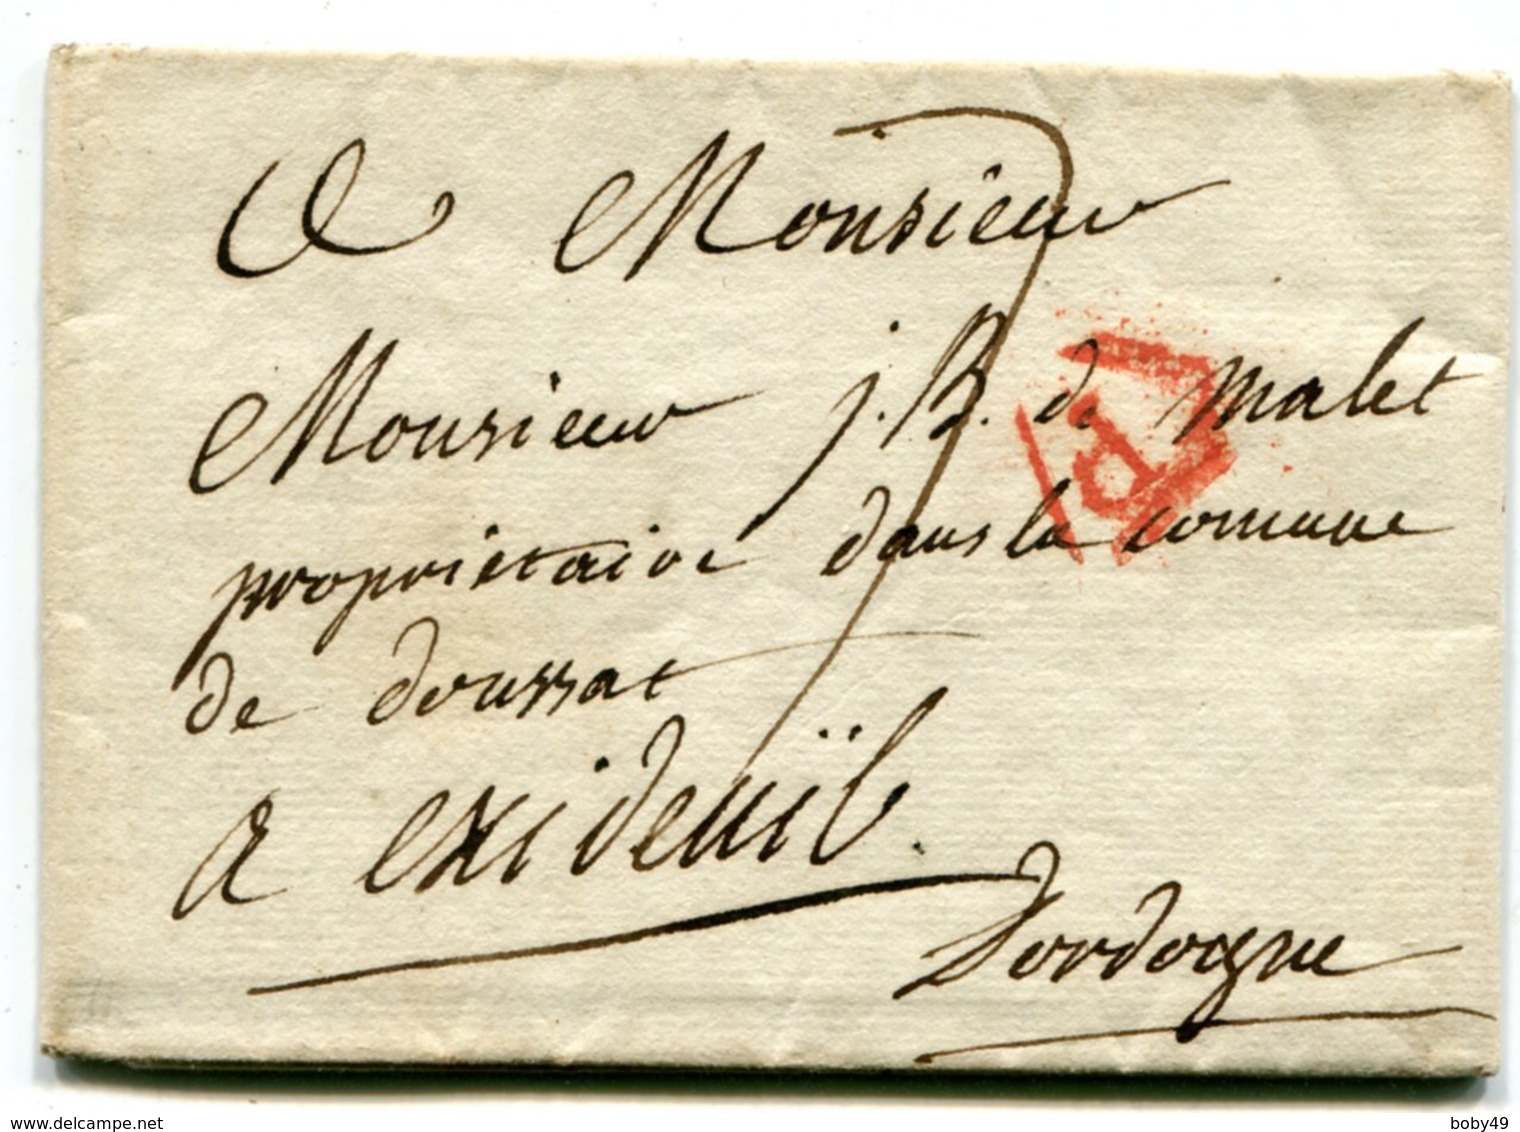 A Monsieur
Monsieur j. B. de Malet
proprietaire dans la comune
de doussat
a exideuïl.
Dordogne
P
delcampe.net
boby49